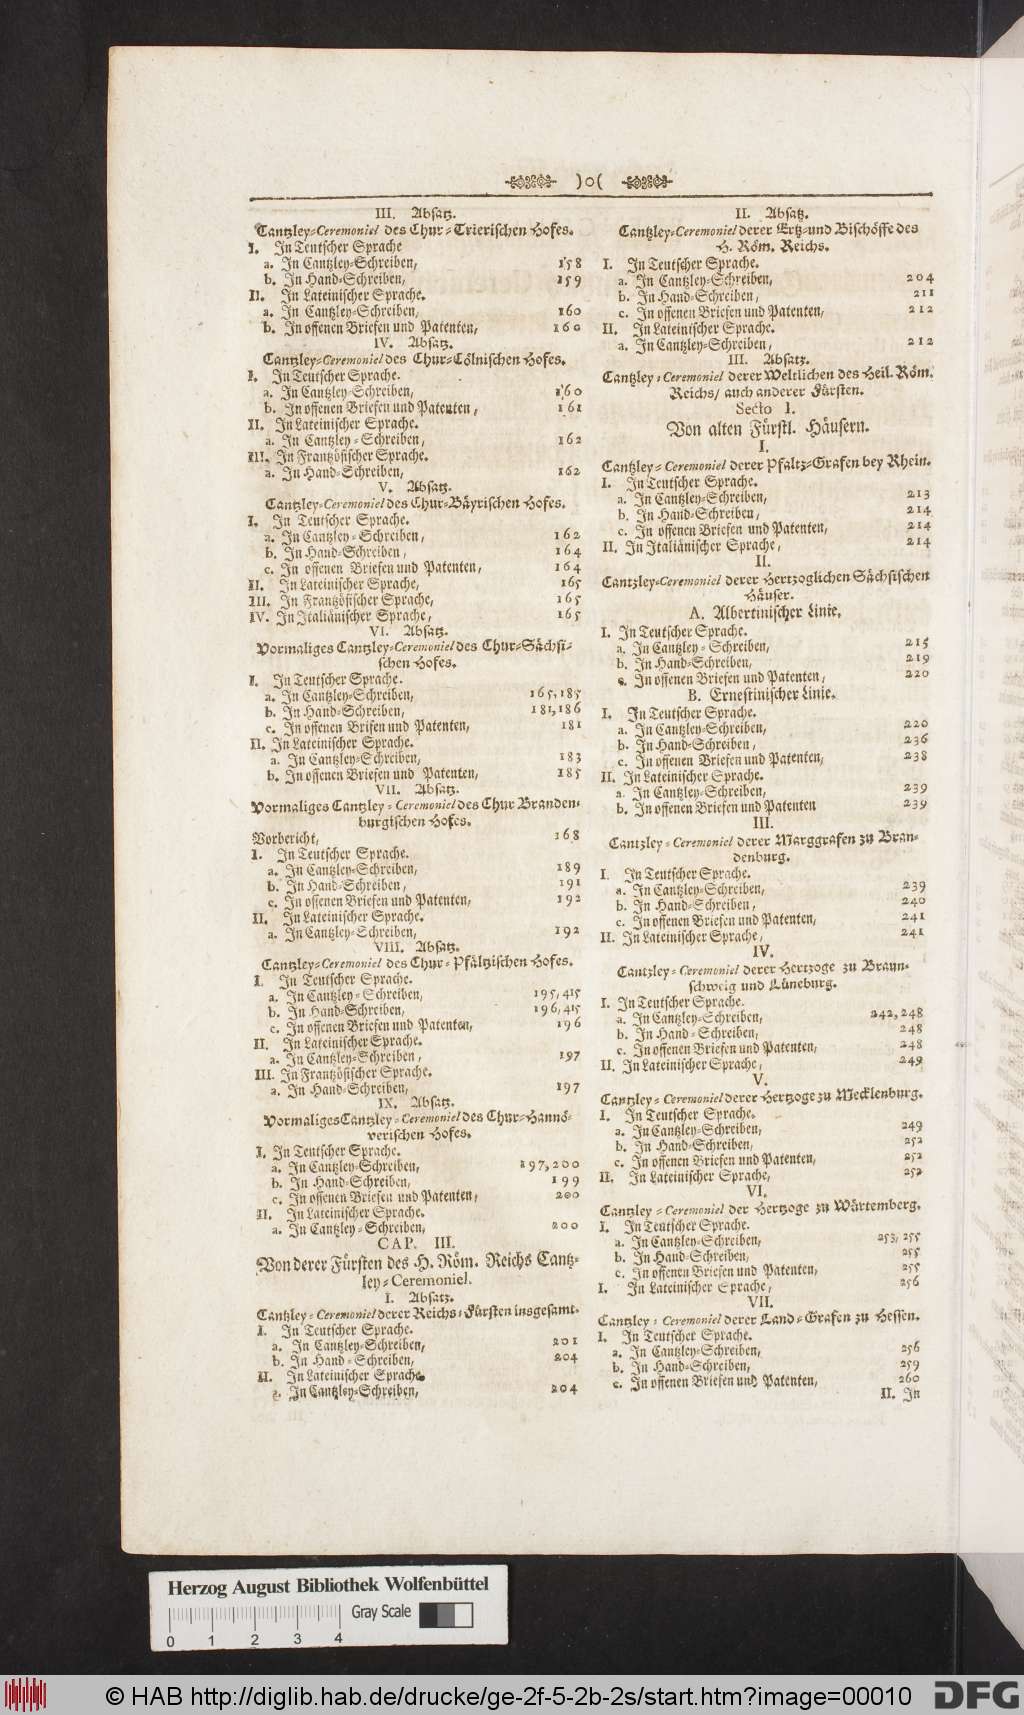 )o(
III. Absatz.
Cantzley-Ceremoniel des Chur-Trierischen Hofes.
I. In Teutscher Sprache
a. In Cantzley-Schreiben, 158
b. In Hand-Schreiben, 159
II. In Lateinischer Sprache.
a. In Cantzley-Schreiben, 160
b. In offenen Briefen und Patenten, 160
IV. Absatz.
Cantzley-Ceremoniel des Chur-Cölnischen Hofes.
I. In Teutscher Sprache.
a. In Cantzley-Schreiben, 160
b. In offenen Briefen und Patenten, 161
II. In Lateinischer Sprache.
a. In Cantzley-Schreiben, 162
III. In Frantzösischer Sprache.
a. In Hand-Schreiben, 162
V. Absatz.
Cantzley-Ceremoniel des Chur-Bäyrischen Hofes.
I. In Teutscher Sprache.
a. In Cantzley-Schreiben, 162
b. In Hand-Schreiben, 164
c. In offenen Briefen und Patenten, 164
II. In Lateinischer Sprache, 165
III. In Frantzösischer Sprache, 165
IV. In Italiänischer Sprache, 165
VI. Absatz.
Vormaliges Cantzley-Ceremoniel des Chur-Sächsi-
schen Hofes.
I. In Teutscher Sprache.
a. In Cantzley-Schreiben, 165, 185
b. In Hand-Schreiben, 181, 186
c. In offenen Brifen und Patenten, 181
II. In Lateinischer Sprache.
a. In Cantzley-Schreiben, 183
b. In offenen Briefen und Patenten, 185
VII. Absatz.
Vormaliges Cantzley-Ceremoniel des Chur Branden-
burgischen Hofes.
Vorbericht, 168
I. In Teutscher Sprache.
a. In Cantzley-Schreiben, 189
b. In Hand-Schreiben, 191
c. In offenen Briefen und Patenten, 192
II. In Lateinischer Sprache.
a. In Cantzley-Schreiben, 192
VIII. Absatz.
Cantzley-Ceremoniel des Chur-Pfältzischen Hofes.
I. In Teutscher Sprache.
a. In Cantzley-Schreiben, 195, 415
b. In Hand-Schreiben, 196, 415
c. In offenen Briefen und Patenten, 196
II. In Lateinischer Sprache.
a. In Cantzley-Schreiben, 197
III. In Frantzösischer Sprache.
a. In Hand-Schreiben, 197
IX. Absatz.
Vormaliges Cantzley-Ceremoniel des Chur-Hannö-
verischen Hofes.
I. In Teutscher Sprache.
a. In Cantzley-Schreiben, 197, 200
b. In Hand-Schreiben, 199
c. In offenen Briefen und Patenten, 200
II. In Lateinischer Sprache.
a. In Cantzley-Schreiben, 200
CAP. III.
Von derer Fürsten des H. Röm. Reichs Cantz-
ley-Ceremoniel.
I. Absatz.
Cantzley-Ceremoniel derer Reichs-Fürsten insgesamt.
I. In Teutscher Sprache.
a. In Cantzley-Schreiben, 201
b. In Hand-Schreiben, 204
II. In Lateinischer Sprache.
a. In Cantzley-Schreiben, 204
II. Absatz.
Cantzley-Ceremoniel derer Ertz-und Bischöffe des
H. Röm. Reichs.
I. In Teutscher Sprache.
a. In Cantzley-Schreiben, 204
b. In Hand-Schreiben, 211
c. In offenen Briefen und Patenten, 212
II. In Lateinischer Sprache.
a. In Cantzley-Schreiben, 212
III. Absatz.
Cantzley-Ceremoniel derer Weltlichen des Heil. Röm.
Reichs/ auch anderer Fürsten.
Sectio I.
Von alten Fürstl. Häusern.
I.
Cantzley-Ceremoniel derer Pfaltz-Grafen bey Rhein.
I. In Teutscher Sprache.
a. In Cantzley-Schreiben, 213
b. In Hand-Schreiben, 214
c. In offenen Briefen und Patenten, 214
II. In Italiänischer Sprache, 214
II.
Cantzley-Ceremoniel derer Hertzoglichen Sächsischen
Häuser.
A. Albertinischer Linie.
I. In Teutscher Sprache.
a. In Cantzley-Schreiben, 215
b. In Hand-Schreiben, 219
c. In offenen Briefen und Patenten, 220
B. Ernestinischer Linie.
I. In Teutscher Sprache.
a. In Cantzley-Schreiben, 220
b. In Hand-Schreiben, 236
c. In offenen Briefen und Patenten, 238
II. In Lateinischer Sprache.
a. In Cantzley-Schreiben, 239
b. In offenen Briefen und Patenten 239
III.
Cantzley-Ceremoniel derer Marggrafen zu Bran-
denburg.
I. In Teutscher Sprache.
a. In Cantzley-Schreiben, 239
b. In Hand-Schreiben, 240
c. In offenen Briefen und Patenten, 241
II. In Lateinischer Sprache, 241
IV.
Cantzley-Ceremoniel derer Hertzoge zu Braun-
schweig und Lüneburg.
I. In Teutscher Sprache.
a. In Cantzley-Schreiben, 242, 248
b. In Hand-Schreiben, 248
c. In offenen Briefen und Patenten, 248
II. In Lateinischer Sprache, 249
V.
Cantzley-Ceremoniel derer Hertzoge zu Mecklenburg.
I. In Teutscher Sprache.
a. In Cantzley-Schreiben, 249
b. In Hand-Schreiben, 252
c. In offenen Briefen und Patenten, 252
II. In Lateinischer Sprache, 252
VI.
Cantzley-Ceremoniel der Hertzoge zu Würtemberg.
I. In Teutscher Sprache.
a. In Cantzley-Schreiben, 253, 255
b. In Hand-Schreiben, 255
c. In offenen Briefen und Patenten, 255
I. In Lateinischer Sprache, 256
VII.
Cantzley-Ceremoniel derer Land-Grafen zu Hessen.
I. In Teutscher Sprache.
a. In Cantzley-Schreiben, 256
b. In Hand-Schreiben, 259
c. In offenen Briefen und Patenten, 260
II. In
Herzog August Bibliothek Wolfenbüttel
Gray Scale
0 1 2 3 4
© HAB http://diglib.hab.de/drucke/ge-2f-5-2b-2s/start.htm?image=00010
DFG